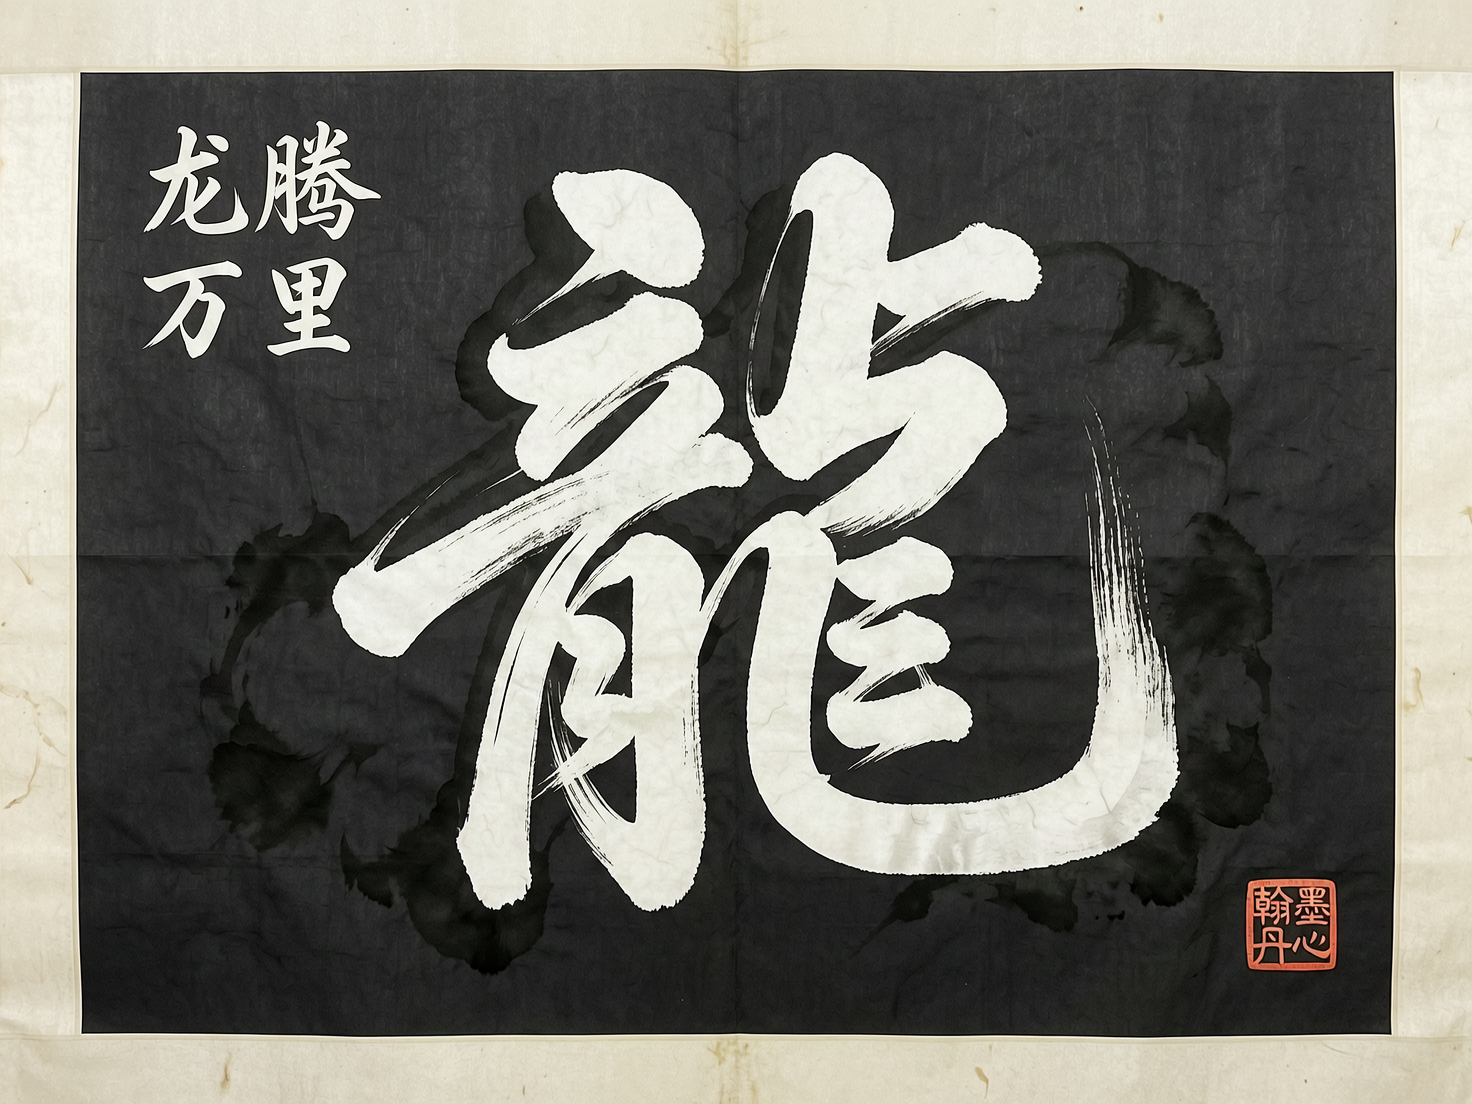 龙腾
万里
龍
翰墨
丹心